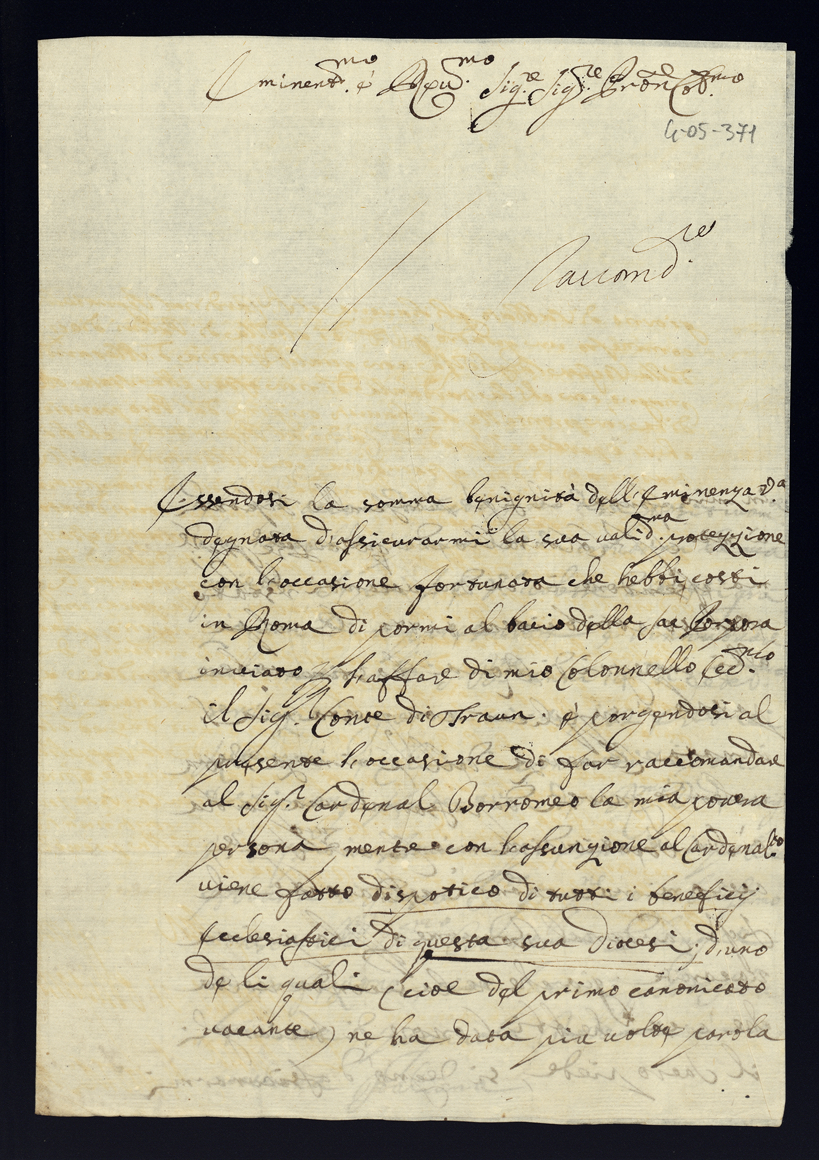 Eminent.mo é R.eu.mo Sig.re Sig.re Prōn Col.mo
4-05-371
Raccomd.ce
Essendosi la somma benignità dell'Eminenza V.a
degnata d'assicurarmi la sua valid.ma protezzione
con l'occasione fortunata che hebbi costi
in Roma di pormi al bacio della sac. Porpora
inviato p l'affare di mio Colonnello
il Sig. Conte di Traun. é porgendosi al
presente l'occasione di far raccomandare
al Sig.r Cardenal Borromeo la mia povera
persona mentre con l'assunzione al Cardenal.to
viene fatto dispotico di tutti i beneficij
Ecclesiastici di questa sua diocesi; d'uno
de li quali (cioe del primo canonicato
vacante) ne ha data piu volte parola